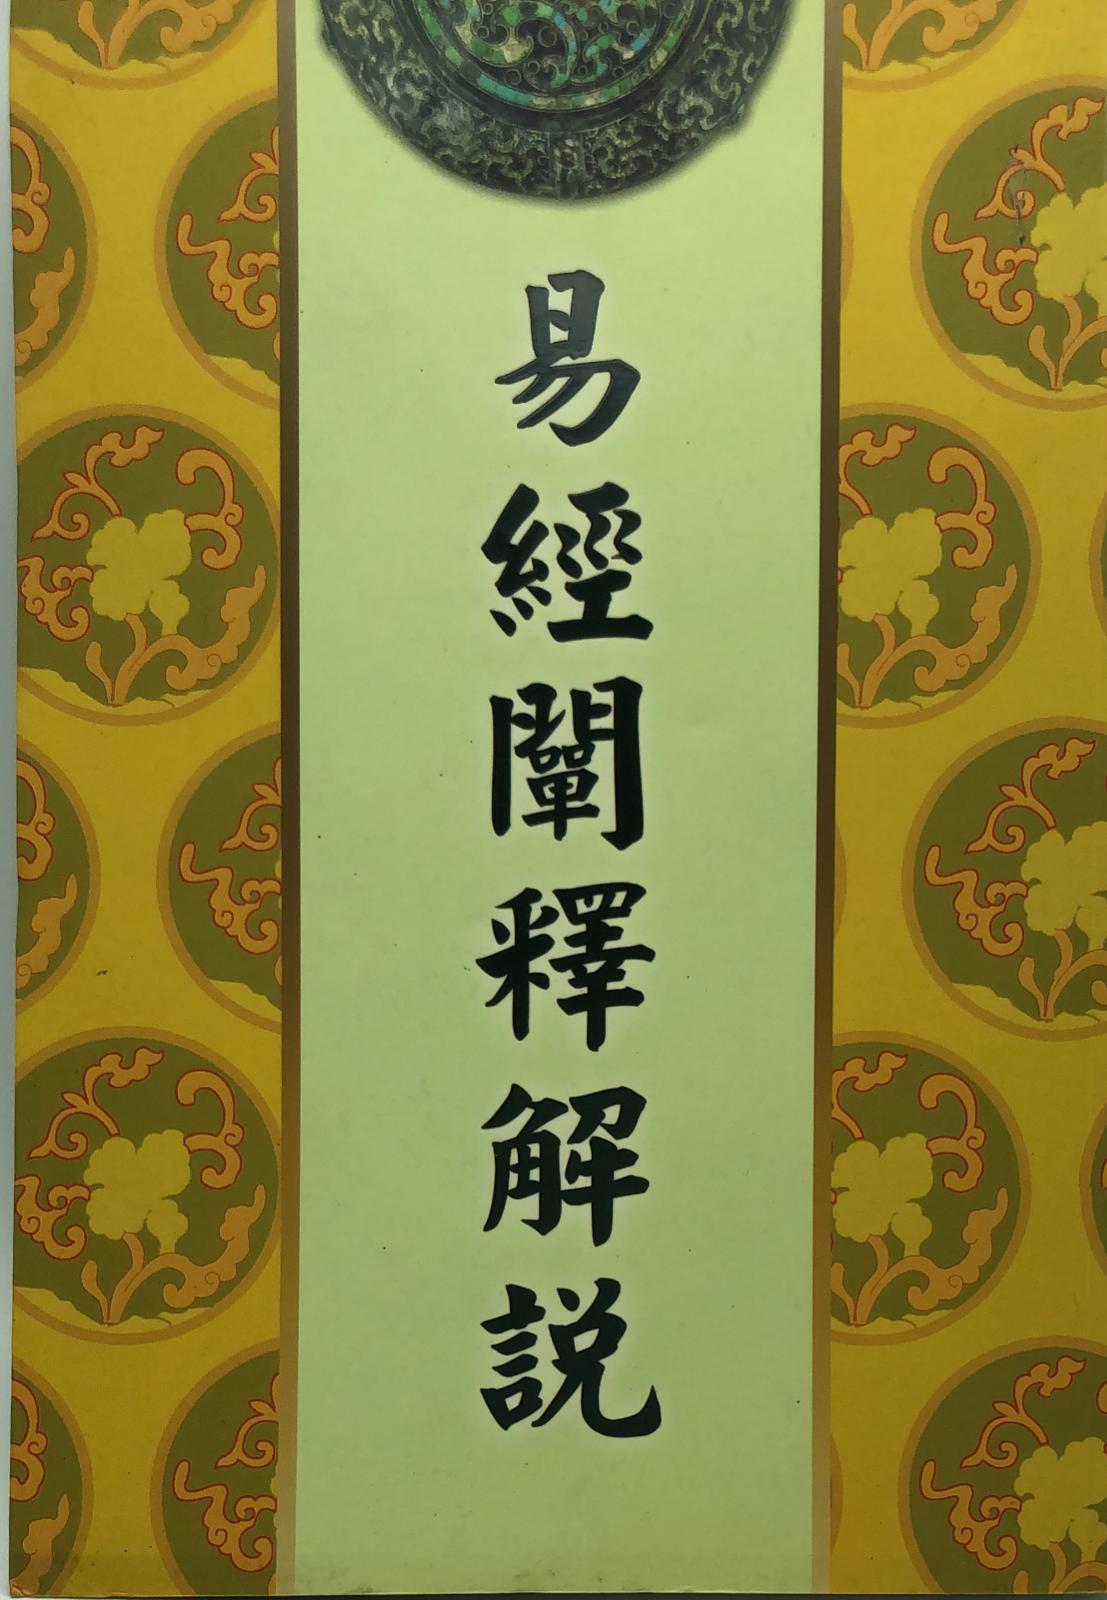 易經闡釋解説